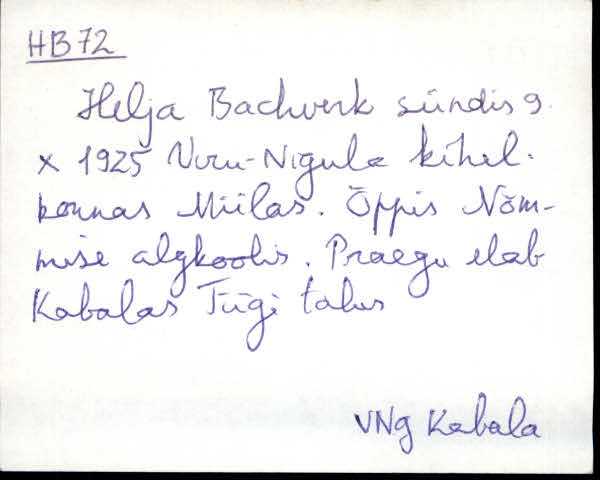 HB72
Helja Bachverk sündis 9.
X 1925 Viru-Nigula kihel-
konnas Miilas. Õppis Nõm-
mise algkoolis. Praegu elab
Kabalas Tiigi talus
VNg Kabala